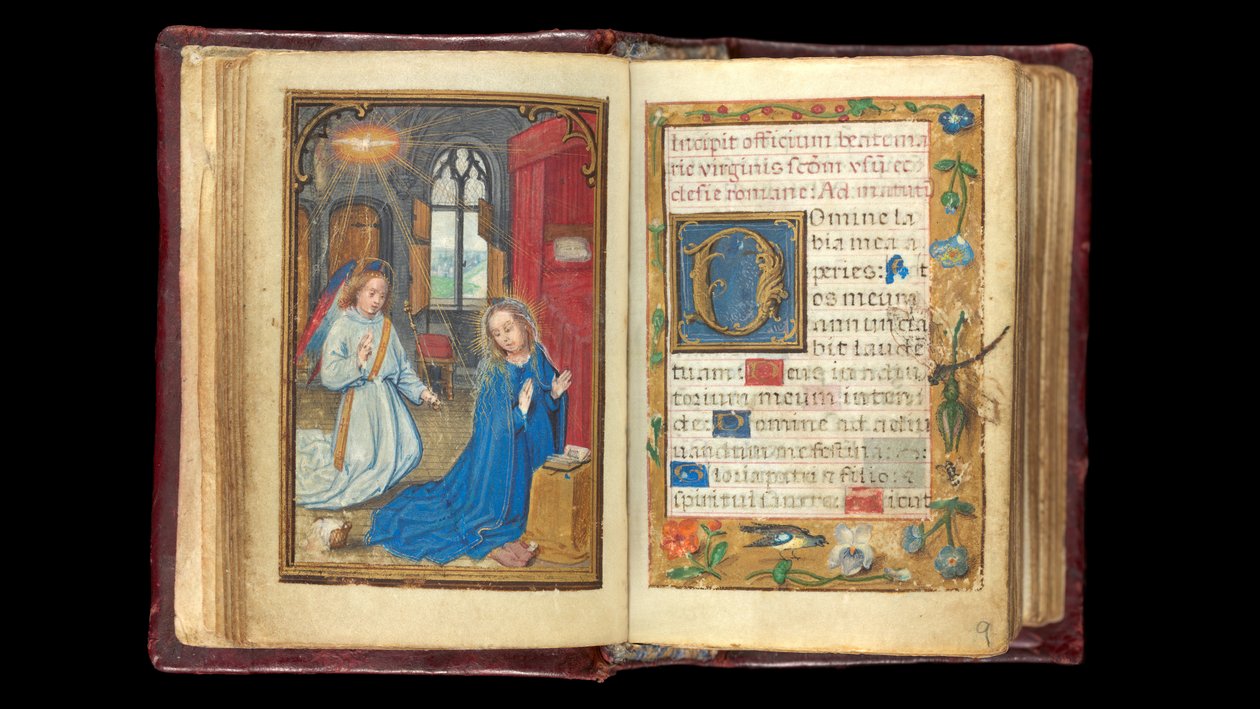 Incipit officium beate ma
rie virginis scdm usu ec
clesie romane: Ad matuti
Domine la
bia mea a
peries: Et
os meum
annuncia
bit laudē
tuam: Deus in adiu
torium meum inten
de: Domine ad adiu
uandum me festina:
Gloria patri et filio: et
spiritui sancto: Sicut
9